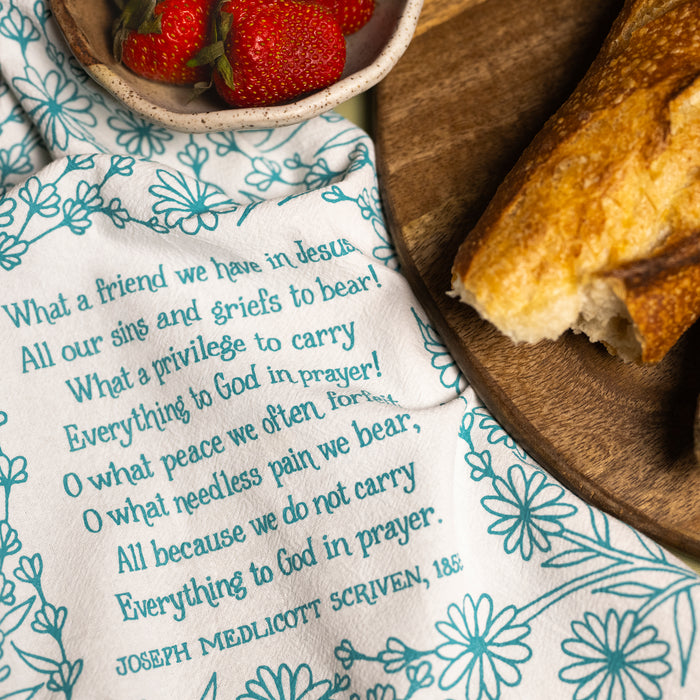 What a friend we have in Jesus
All our sins and griefs to bear!
What a privilege to carry
Everything to God in prayer!
O what peace we often forfeit
O what needless pain we bear,
All because we do not carry
Everything to God in prayer.
JOSEPH MEDLICOTT SCRIVEN, 1855